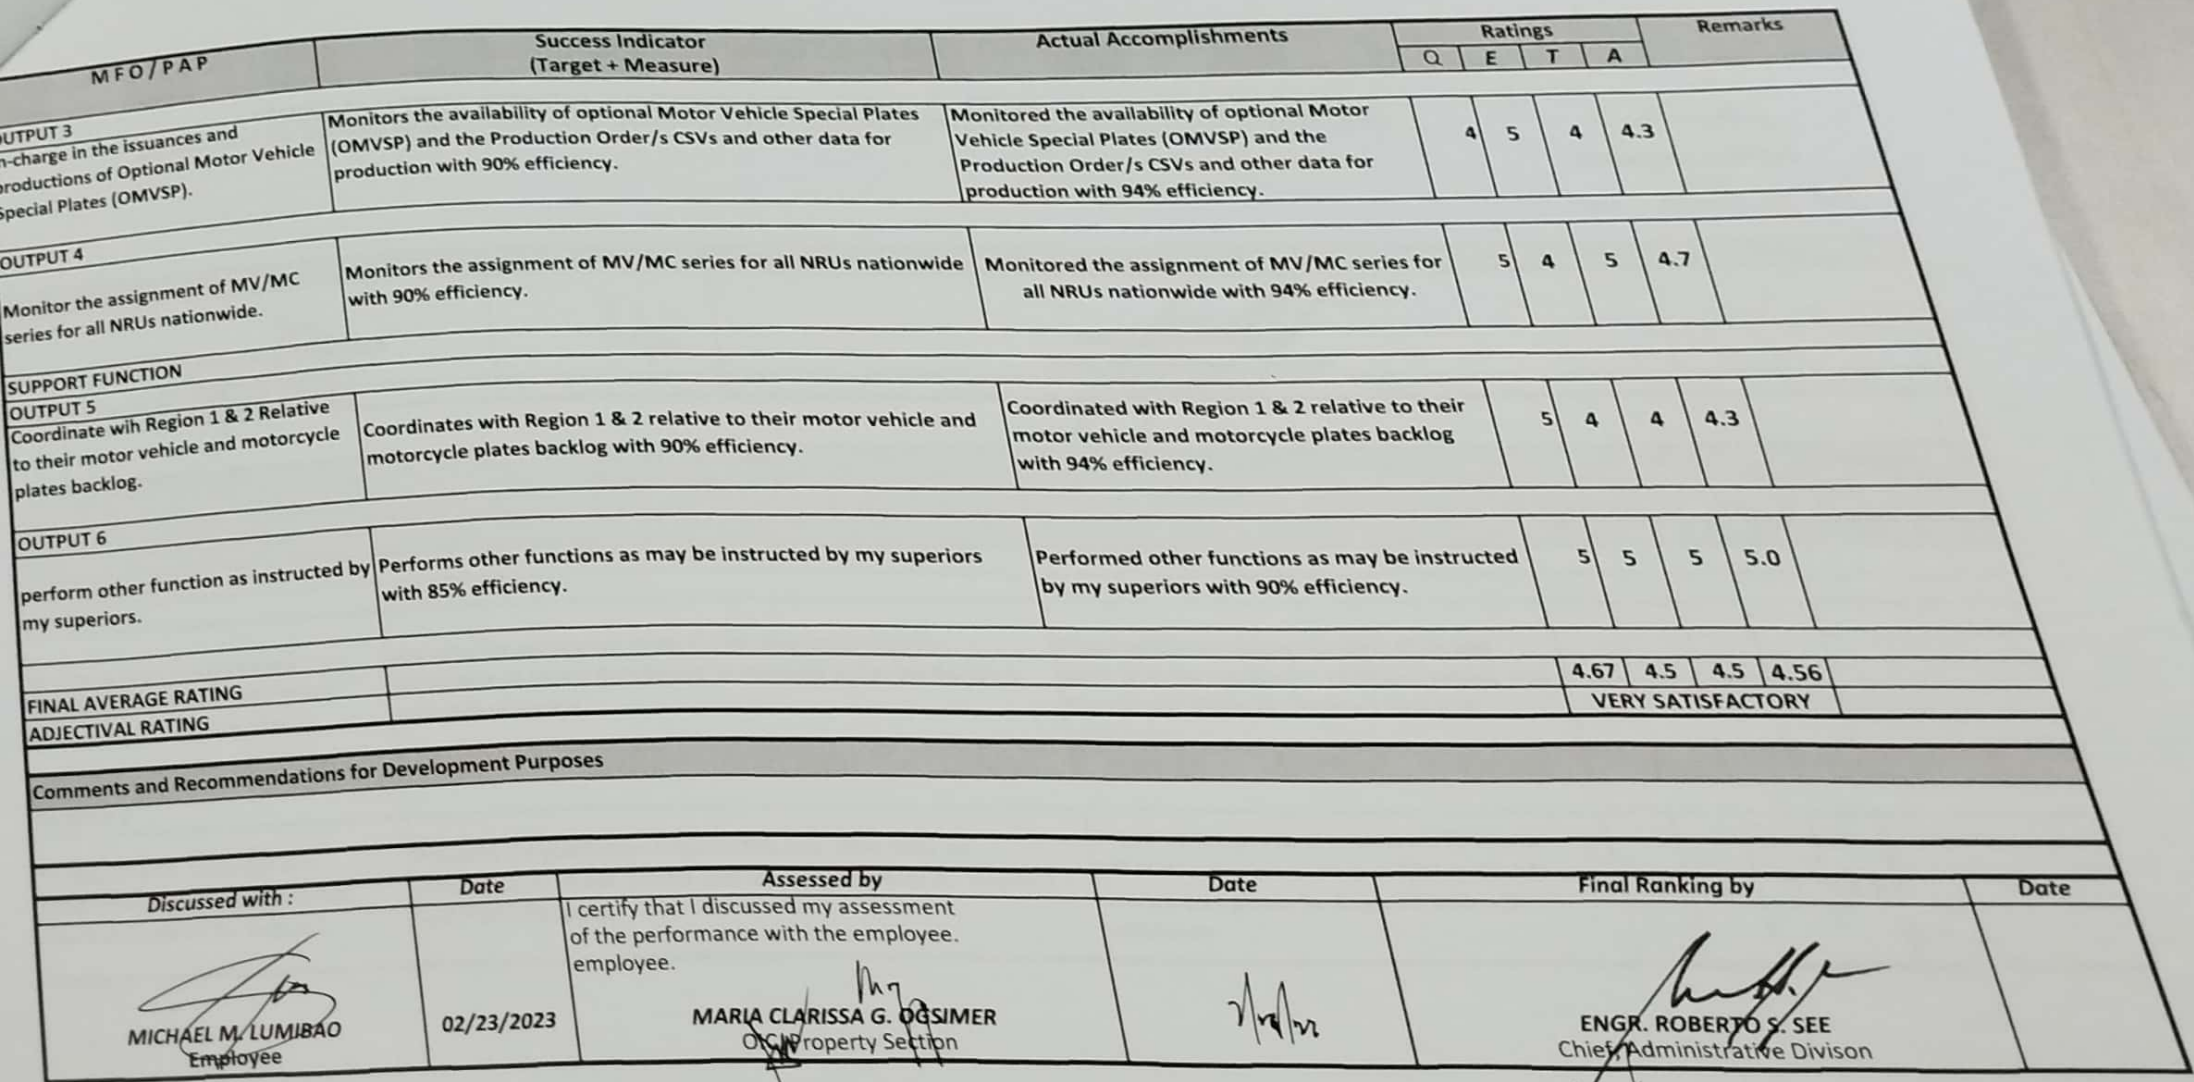 MFO/PAP
Success Indicator
(Target + Measure)
Actual Accomplishments
Ratings
Q E T A
Remarks
OUTPUT 3
In-charge in the issuances and
productions of Optional Motor Vehicle
Special Plates (OMVSP).
Monitors the availability of optional Motor Vehicle Special Plates
(OMVSP) and the Production Order/s CSVs and other data for
production with 90% efficiency.
Monitored the availability of optional Motor
Vehicle Special Plates (OMVSP) and the
Production Order/s CSVs and other data for
production with 94% efficiency.
4 5 4 4.3
OUTPUT 4
Monitor the assignment of MV/MC
series for all NRUs nationwide.
Monitors the assignment of MV/MC series for all NRUs nationwide
with 90% efficiency.
Monitored the assignment of MV/MC series for
all NRUs nationwide with 94% efficiency.
5 4 5 4.7
SUPPORT FUNCTION
OUTPUT 5
Coordinate wih Region 1 & 2 Relative
to their motor vehicle and motorcycle
plates backlog.
Coordinates with Region 1 & 2 relative to their motor vehicle and
motorcycle plates backlog with 90% efficiency.
Coordinated with Region 1 & 2 relative to their
motor vehicle and motorcycle plates backlog
with 94% efficiency.
5 4 4 4.3
OUTPUT 6
perform other function as instructed by
my superiors.
Performs other functions as may be instructed by my superiors
with 85% efficiency.
Performed other functions as may be instructed
by my superiors with 90% efficiency.
5 5 5 5.0
FINAL AVERAGE RATING
4.67 4.5 4.5 4.56
ADJECTIVAL RATING
VERY SATISFACTORY
Comments and Recommendations for Development Purposes
Discussed with :
Date
Assessed by
Date
Final Ranking by
Date
I certify that I discussed my assessment
of the performance with the employee.
employee.
MICHAEL M. LUMIBAO
Employee
02/23/2023
MARIA CLARISSA G. OGSIMER
Property Section
ENGR. ROBERTO S. SEE
Chief, Administrative Divison